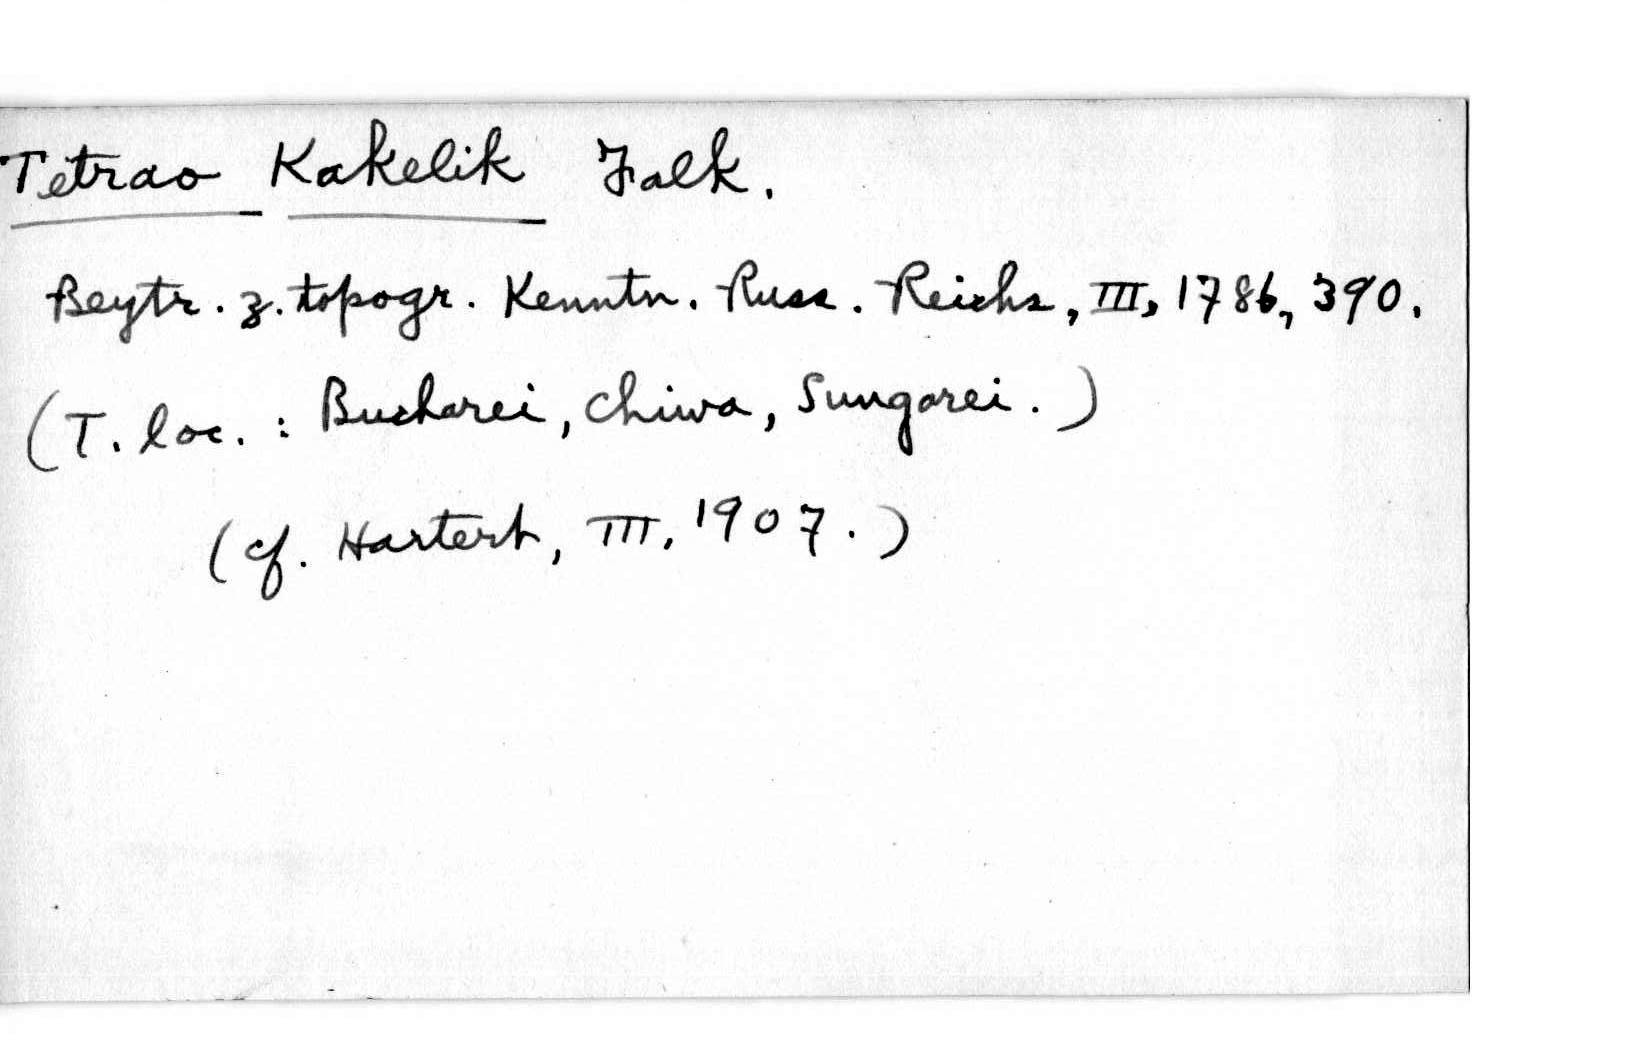 Tetrao Kakelik Falk.
Beytr. z. topogr. Kenntn. Russ. Reichs, III, 1786, 390.
(T. loc. : Bucharei, Chiwa, Sungarei.)
(cf. Hartert, III, 1907.)